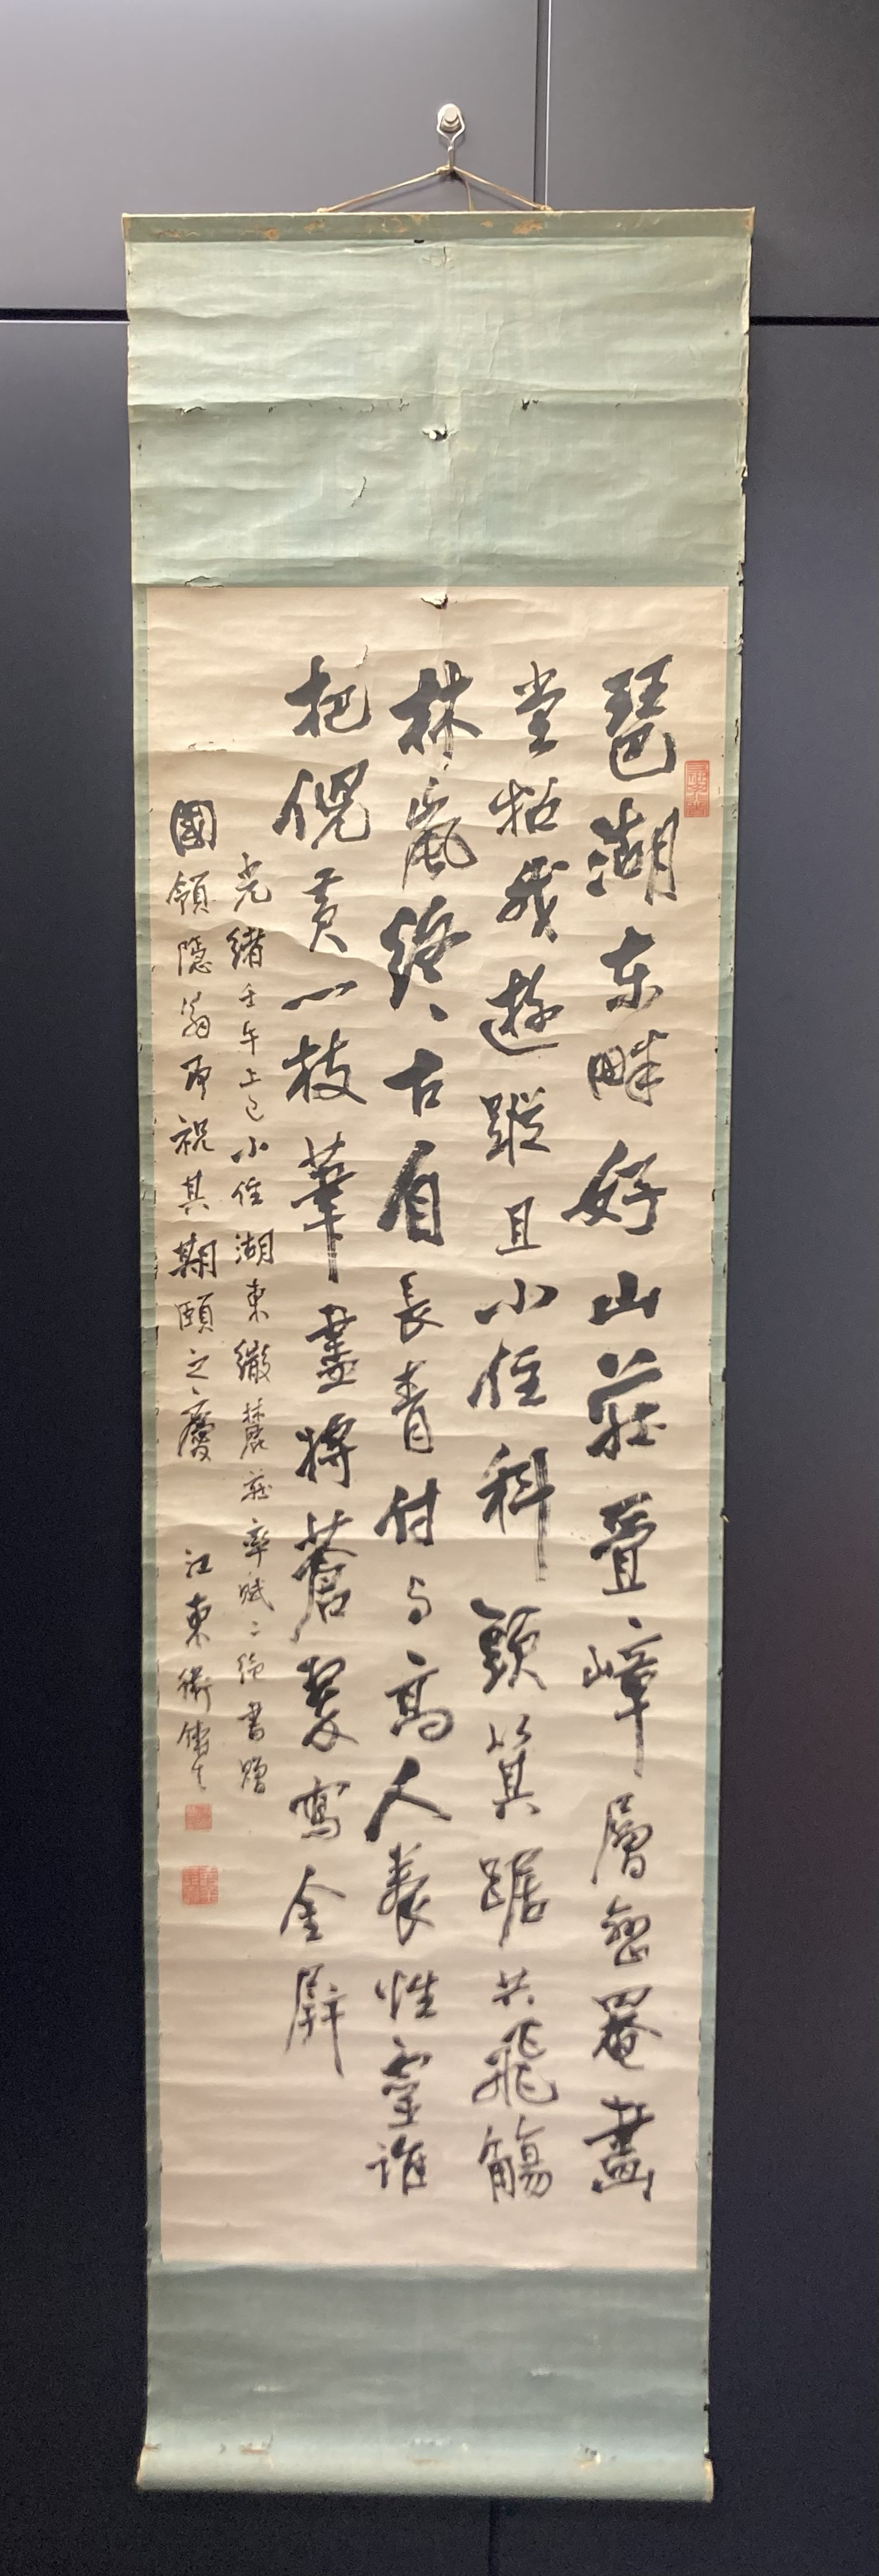 琶湖东畔好山莊疊嶂層巒罨畫
堂招我遊蹤且小住科頭箕踞共飛觴
林嵐終古自長青付与高人養性靈誰
把倪黃一枝筆盡將蒼翠寫金屏
光緒壬午上巳小住湖東繖麓莊率賦二絶書贈
國領隱翁即祝其期頤之慶 江東衛鑄生